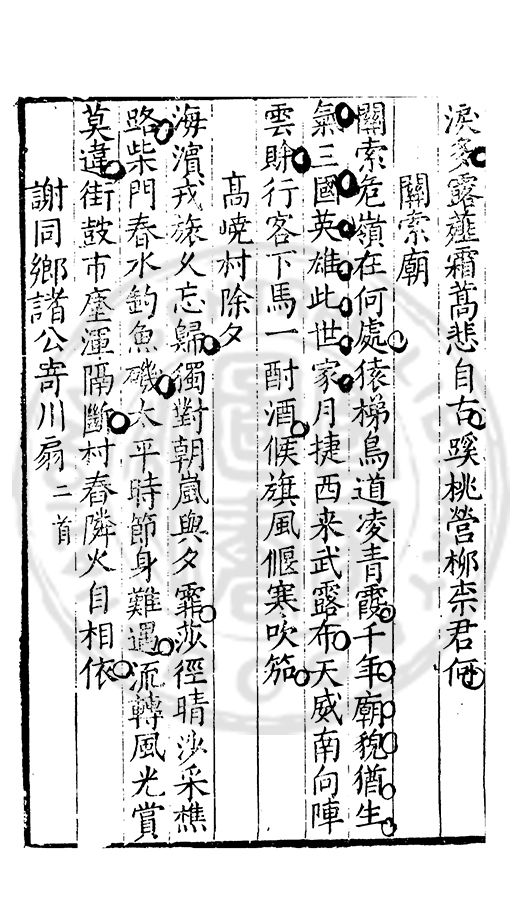 淚多露薤霜蒿悲自古蹊桃營柳柰君何
關索廟
關索危嶺在何處猿梯鳥道凌青霞千年廟貌猶生
氣三國英雄此世家月捷西来武露布天威南向陣
雲賒行客下馬一酹酒候旗風偃寒吹笳
高嶢村除夕
海濵戎旅久忘歸獨對朝嵐與夕霏莎徑晴沙采樵
路柴門春水釣魚磯太平時節身難遇流轉風光賞
莫違街鼓市廛渾隔斷村舂隣火自相依
謝同鄉諸公寄川扇二首